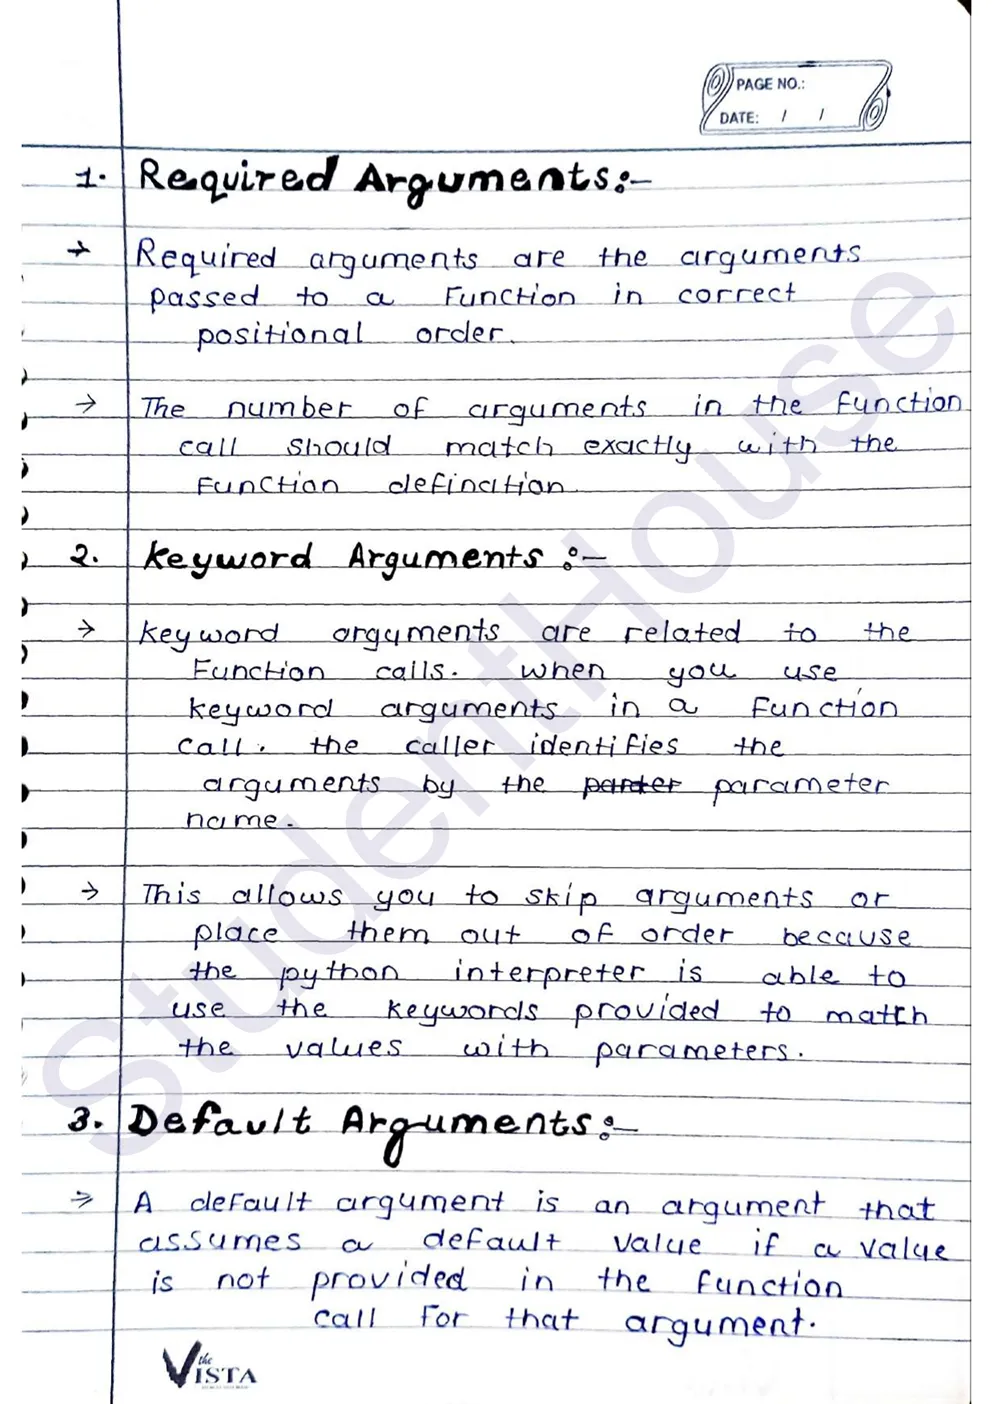 PAGE NO.:
DATE: / /
1. Required Arguments:-
→ Required arguments are the arguments
passed to a Function in correct
positional order.
→ The number of arguments in the Function
call should match exactly with the
Function defination.
2. Keyword Arguments :-
→ Keyword arguments are related to the
Function calls. When you use
keyword arguments in a Function
call. the caller identifies the
arguments by the parameter
name.
→ This allows you to skip arguments or
place them out of order because
the python interpreter is able to
use the keywords provided to match
the values with parameters.
3. Default Arguments:-
⇒ A default argument is an argument that
assumes a default value if a value
is not provided in the function
call for that argument.
the
VISTA
StudentHouse